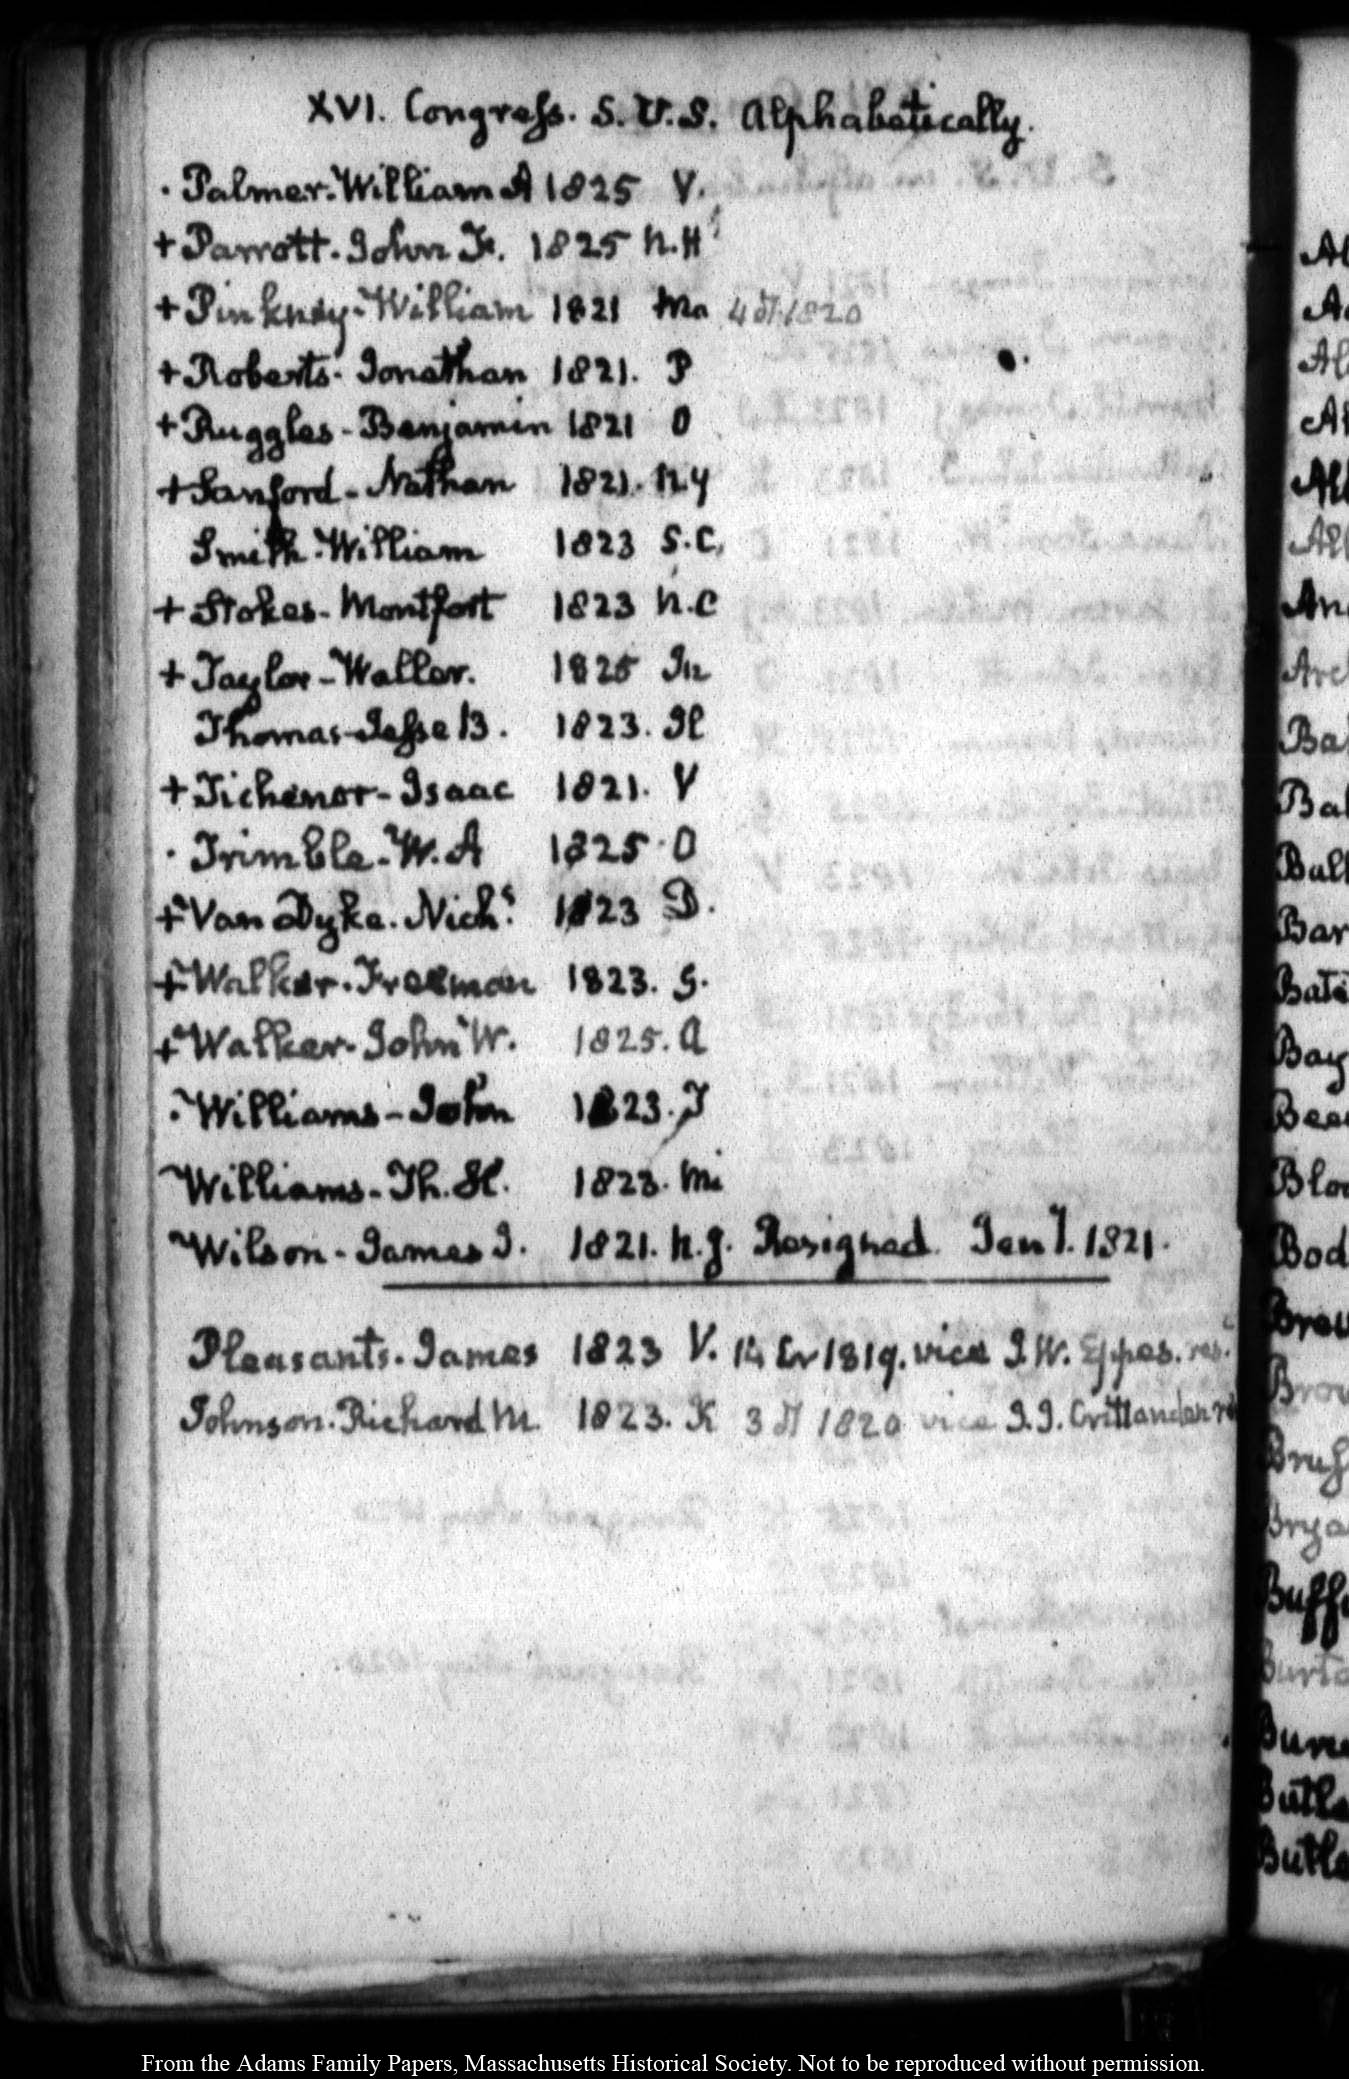 XVI. Congress. S.U.S. Alphabetically.
· Palmer. William A 1825 V.
+ Parrott. John F. 1825 N.H
+ Pinkney. William 1821 Ma 1820
+ Roberts. Jonathan 1821. P
+ Ruggles - Benjamin 1821 O
+ Sanford - Nathan 1821. N.Y
Smith. William 1823 S.C.
+ Stokes - Montfort 1823 N.C
+ Taylor - Waller. 1825 In
Thomas - Jesse B. 1823. Il
+ Tichenor - Isaac 1821. V
· Trimble - W. A 1825. O
+ Van Dyke. Nichs. 1823 D.
+ Walker. Freeman 1823. G.
+ Walker - John W. 1825. A
· Williams - John 1823. T
Williams - Th. H. 1823. Mi
Wilson - James J. 1821. N.J. Resigned Jany. 1821.
Pleasants. James 1823 V. 14 Dr 1819. vice J. W. Eppes. res.
Johnson. Richard M. 1823. K 3 1820 vice J. J. Crittenden
Butle
From the Adams Family Papers, Massachusetts Historical Society. Not to be reproduced without permission.